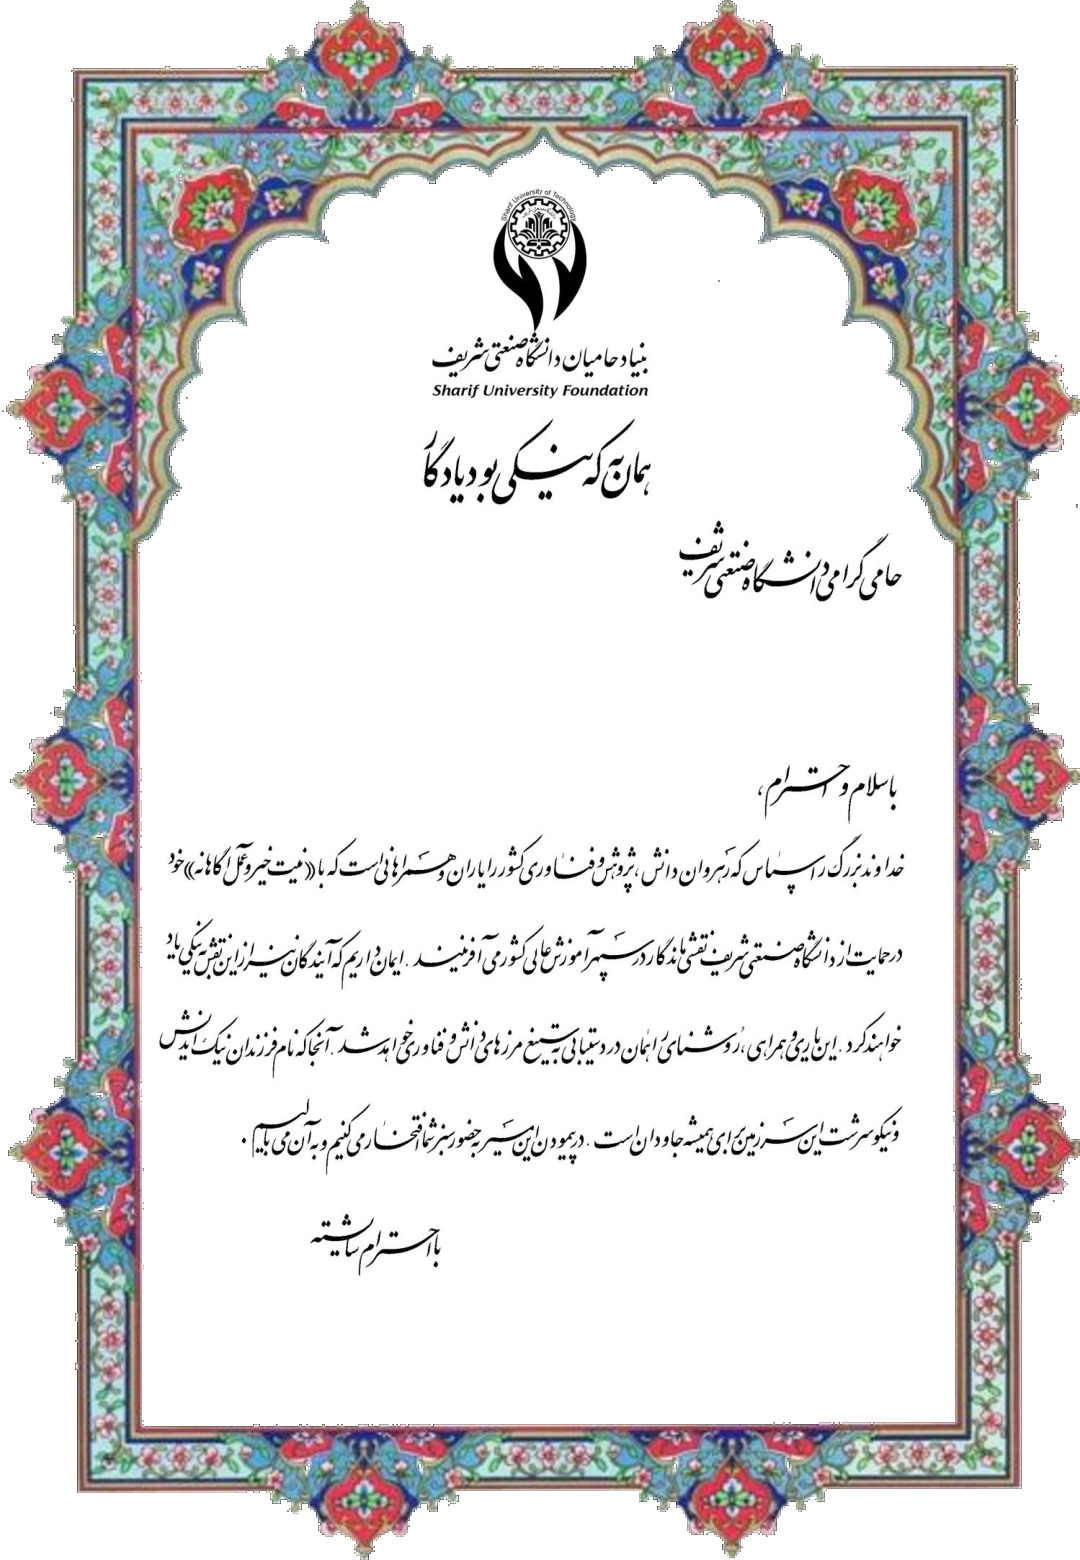 Sharif University of Technology
بنیاد حامیان دانشگاه صنعتی شریف
Sharif University Foundation
همان به که نیکی بود یادگار
حامی گرامی دانشگاه صنعتی شریف
با سلام و احترام،
خداوند بزرگ را سپاس که رهروان دانش، پژوهش و فناوری کشور را یاران و همراهانی است که با «نیت خیر و عمل آگاهانه» خود
در حمایت از دانشگاه صنعتی شریف نقشی ماندگار در سپهر آموزش عالی کشور می آفرینند. ایمان داریم که آیندگان نیز از این نقش به نیکی یاد
خواهند کرد. این یاری و همراهی، روشنای راهمان در دستیابی به ستیغ مرزهای دانش و فناوری خواهد شد. آنجا که نام فرزندان نیک اندیش
و نیکو سرشت این سرزمین برای همیشه جاودان است. در پیمودن این مسیر به حضور سبز شما افتخار می کنیم و به آن می بالیم.
با احترام شایسته